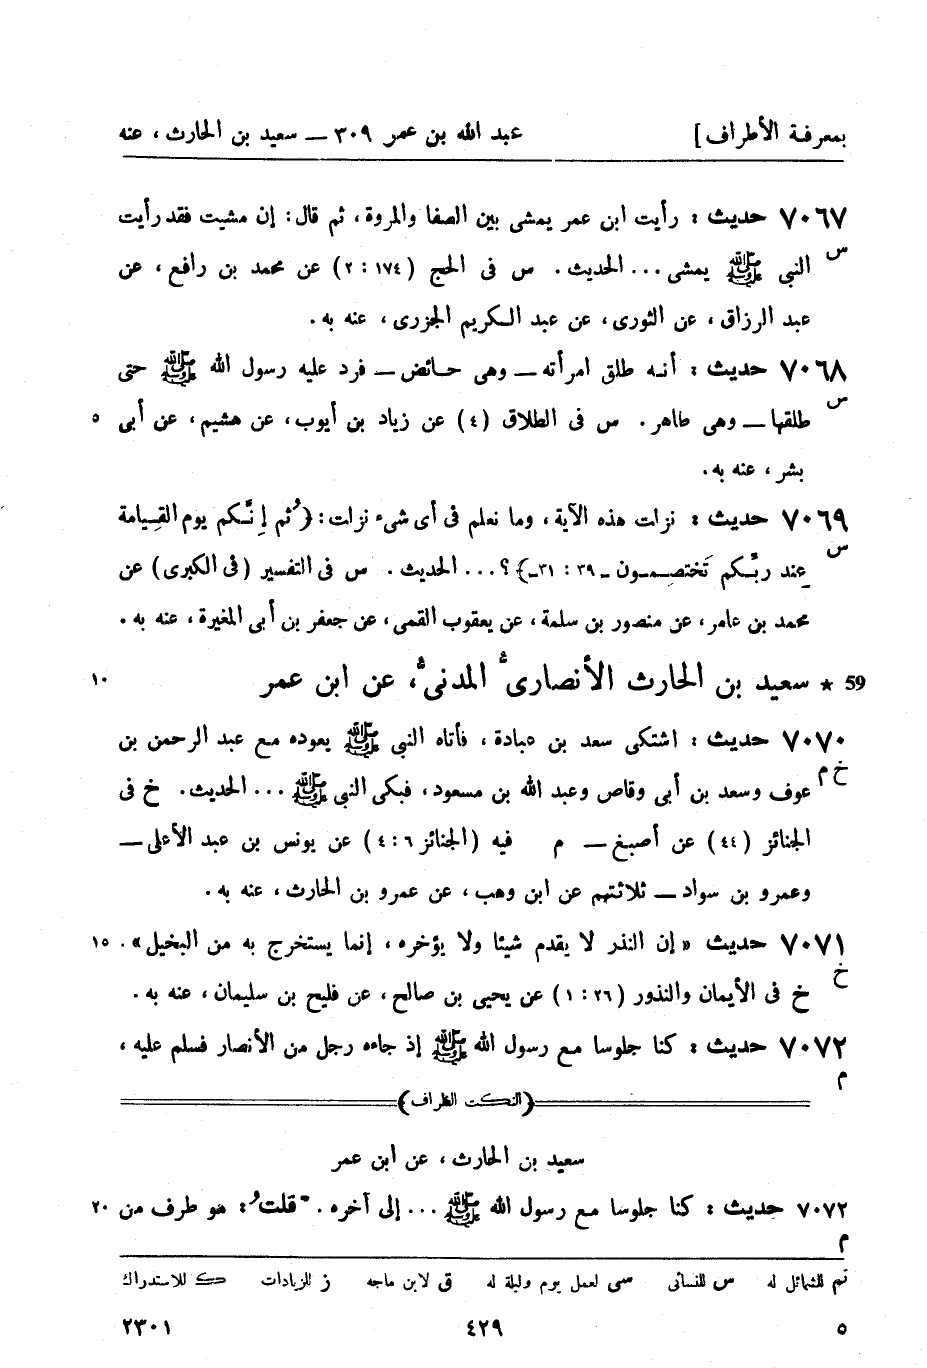 بمعرفة الأطراف] عبد الله بن عمر ٣٠٩ — سعيد بن الحارث ، عنه
٧٠٦٧ حديث : رأيت ابن عمر يمشى بين الصفا والمروة ، ثم قال : إن مشيت فقد رأيت
س
النبى ﷺ يمشى ... الحديث . س فى الحج (١٧٤ : ٢) عن محمد بن رافع ، عن
عبد الرزاق ، عن الثورى ، عن عبد الكريم الجزرى ، عنه به .
٧٠٦٨ حديث : أنه طلق امرأته — وهى حائض — فرد عليه رسول الله ﷺ حتى
س
طلقها — وهى طاهر . س فى الطلاق (٤) عن زياد بن أيوب ، عن هشيم ، عن أبى ٥
بشر ، عنه به .
٧٠٦٩ حديث : نزلت هذه الآية ، وما نعلم فى أى شىء نزلت : ﴿ثُم إنَّكم يوم القِيامة
س
عِند ربِّكم تَختصِمون ـ ٣٩ : ٣١ـ﴾ ؟ ... الحديث . س فى التفسير (فى الكبرى) عن
محمد بن عامر ، عن منصور بن سلمة ، عن يعقوب القمى ، عن جعفر بن أبى المغيرة ، عنه به .
59 ★ سعيد بن الحارث الأنصارىُّ المدنىُّ ، عن ابن عمر ١٠
٧٠٧٠ حديث : اشتكى سعد بن عبادة ، فأتاه النبى ﷺ يعوده مع عبد الرحمن بن
خ م
عوف وسعد بن أبى وقاص وعبد الله بن مسعود ، فبكى النبى ﷺ ... الحديث . خ فى
الجنائز (٤٤) عن أصبغ — م فيه (الجنائز ٦ : ٤) عن يونس بن عبد الأعلى —
وعمرو بن سواد — ثلاثتهم عن ابن وهب ، عن عمرو بن الحارث ، عنه به .
٧٠٧١ حديث «إن النذر لا يقدم شيئا ولا يؤخره ، إنما يستخرج به من البخيل» . ١٥
خ
خ فى الأيمان والنذور (٢٦ : ١) عن يحيى بن صالح ، عن فليح بن سليمان ، عنه به .
٧٠٧٢ حديث : كنا جلوسا مع رسول الله ﷺ إذ جاءه رجل من الأنصار فسلم عليه ،
م
(النكت الظراف)
سعيد بن الحارث ، عن ابن عمر
٧٠٧٢ حديث : كنا جلوسا مع رسول الله ﷺ ... إلى آخره . قلتُ : هو طرف من ٢٠
م
تم للشمائل له س للنسائى سى لعمل يوم وليلة له ق لابن ماجه ز للزيادات ك للاستدراك
٥ ٤٢٩ ٢٣٠١